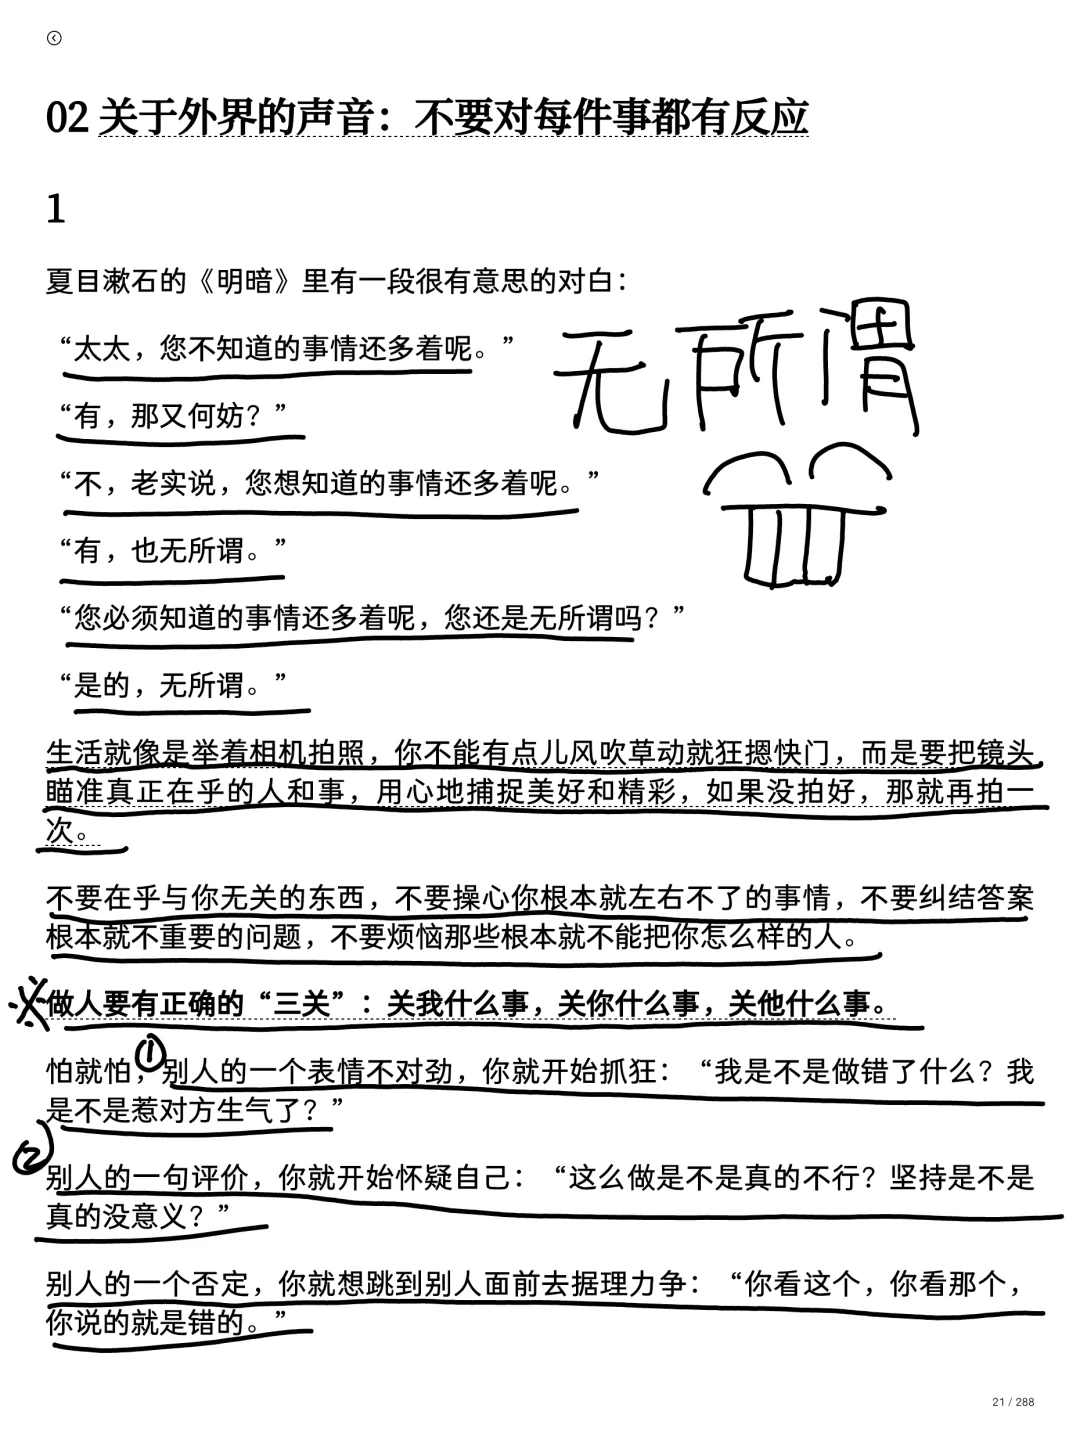 02 关于外界的声音：不要对每件事都有反应
1
夏目漱石的《明暗》里有一段很有意思的对白：
“太太，您不知道的事情还多着呢。”
无所谓
“有，那又何妨？”
“不，老实说，您想知道的事情还多着呢。”
“有，也无所谓。”
“您必须知道的事情还多着呢，您还是无所谓吗？”
“是的，无所谓。”
生活就像是举着相机拍照，你不能有点儿风吹草动就狂摁快门，而是要把镜头
瞄准真正在乎的人和事，用心地捕捉美好和精彩，如果没拍好，那就再拍一
次。
不要在乎与你无关的东西，不要操心你根本就左右不了的事情，不要纠结答案
根本就不重要的问题，不要烦恼那些根本就不能把你怎么样的人。
做人要有正确的“三关”：关我什么事，关你什么事，关他什么事。
①
怕就怕，别人的一个表情不对劲，你就开始抓狂：“我是不是做错了什么？我
是不是惹对方生气了？”
②
别人的一句评价，你就开始怀疑自己：“这么做是不是真的不行？坚持是不是
真的没意义？”
别人的一个否定，你就想跳到别人面前去据理力争：“你看这个，你看那个，
你说的就是错的。”
21 / 288